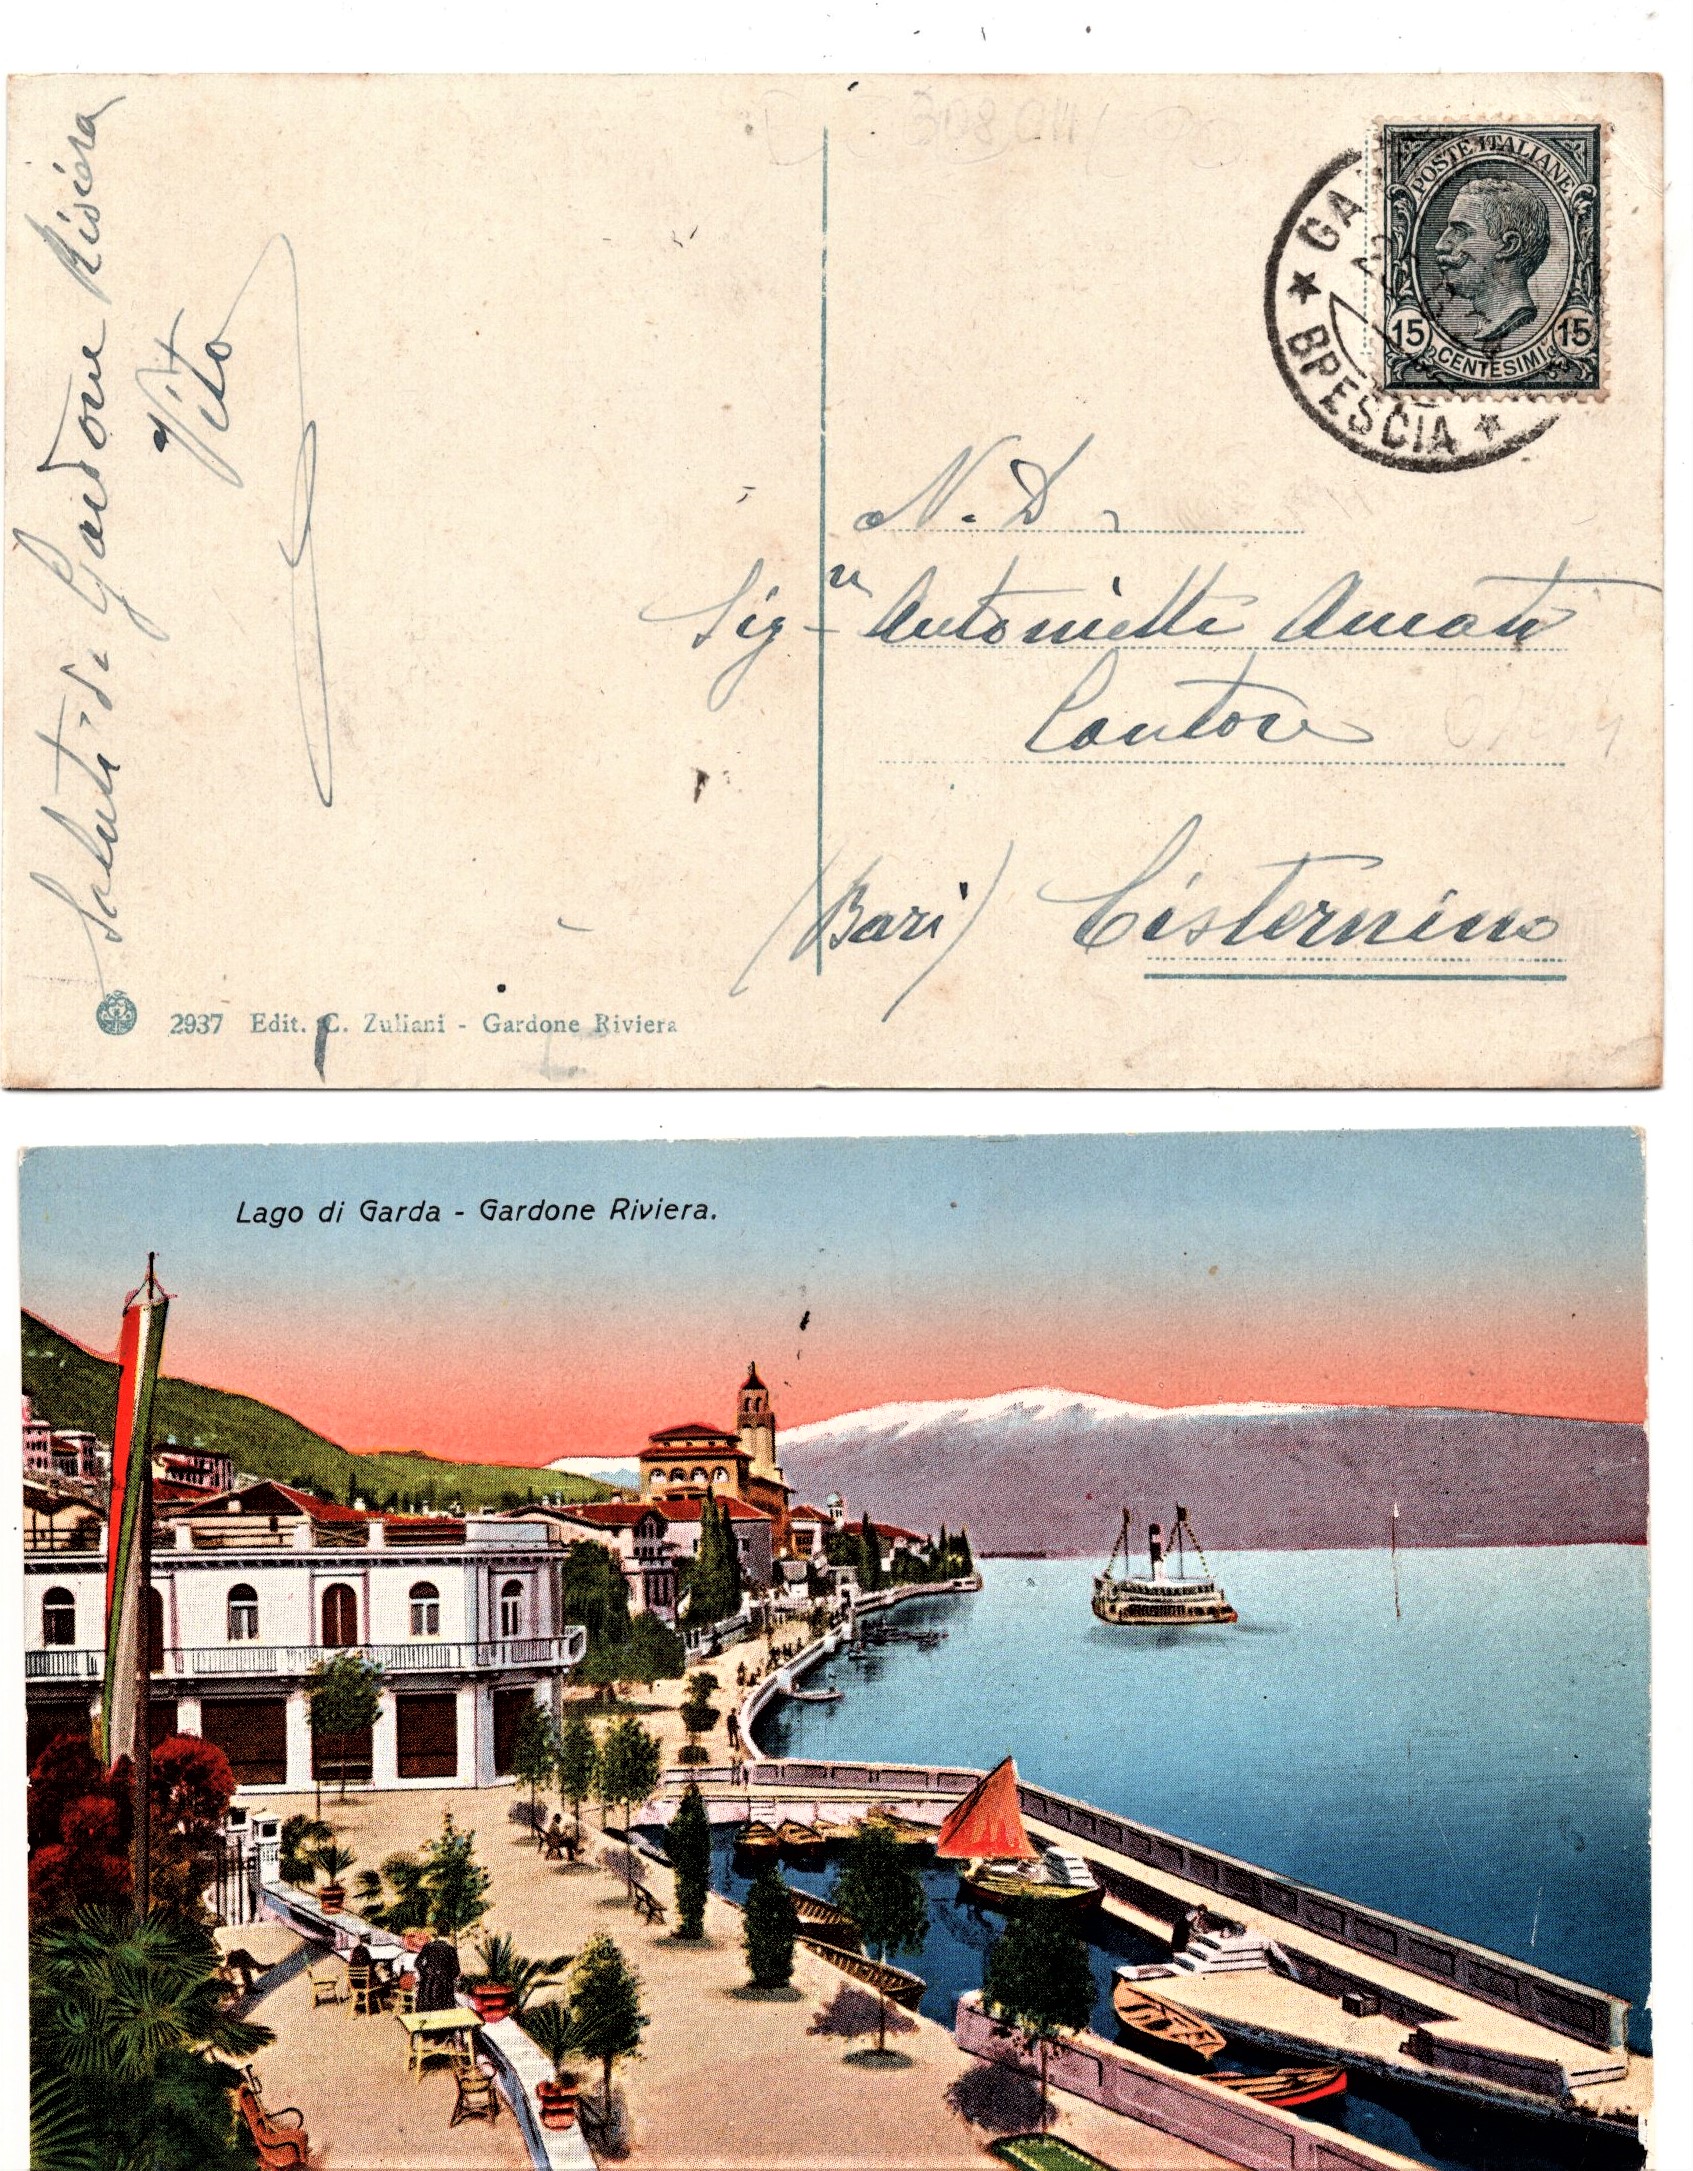 Saluti di Gardone Riviera
Vito
POSTE ITALIANE
15 CENTESIMI 15
BRESCIA
N. D.
Sig.ra Antonietta Amati
Cantore
(Bari) Cisternino
2937 Edit. C. Zuliani - Gardone Riviera
Lago di Garda - Gardone Riviera.